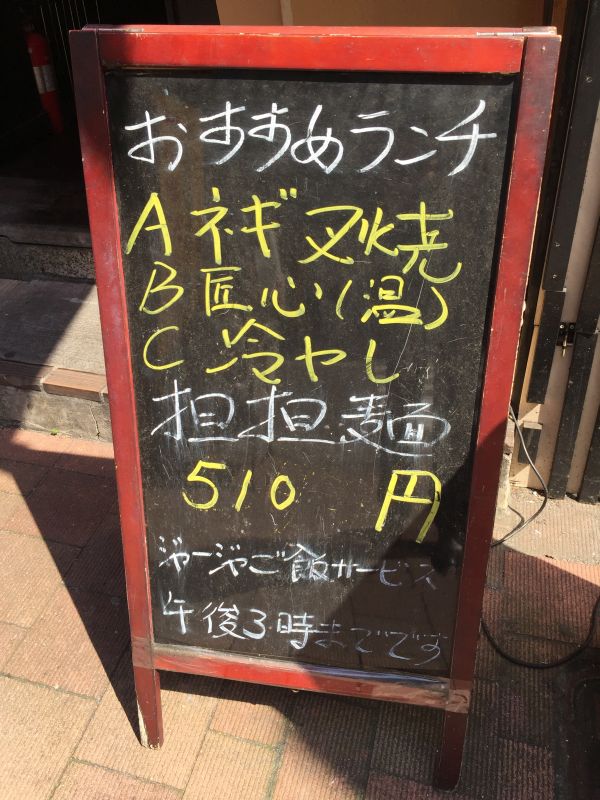 おすすめランチ
A ネギ叉焼
B 匠心(温)
C 冷やし
担担麺
510 円
ジャージャご飯サービス
午後3時までです